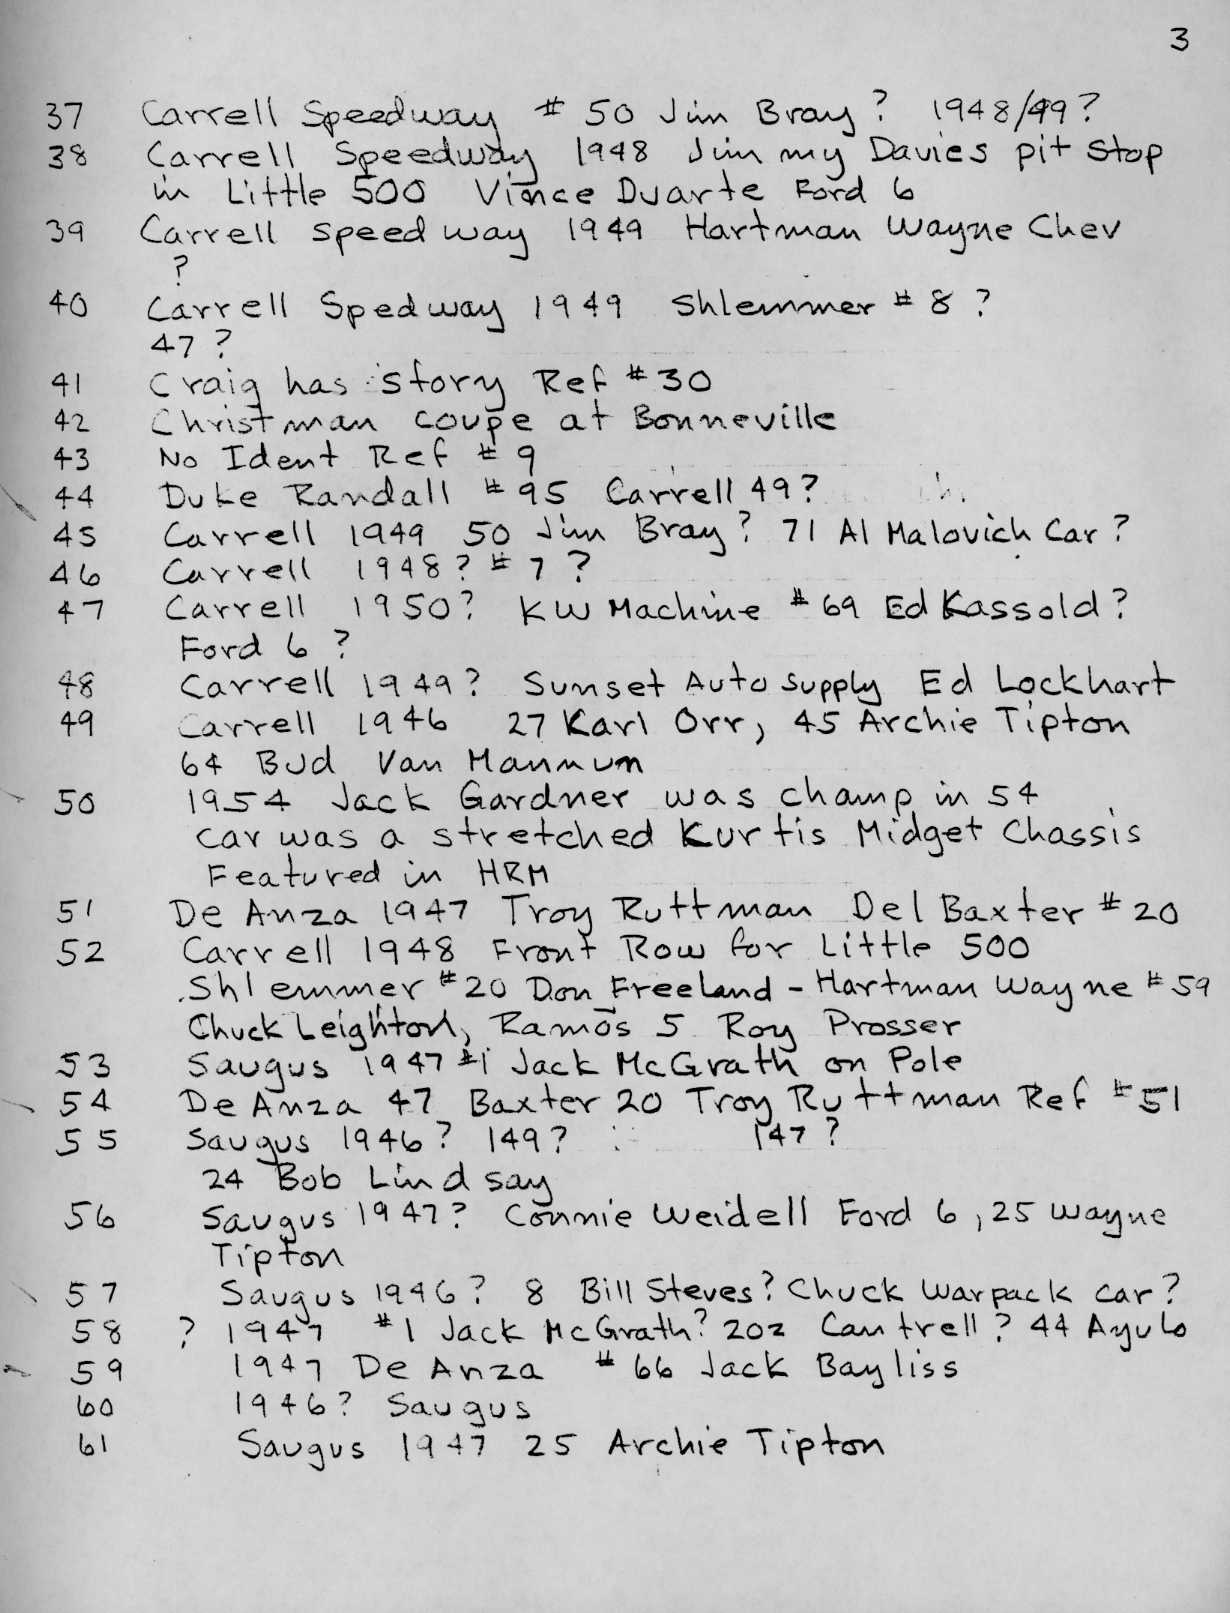 3
37 Carrell Speedway # 50 Jim Bray? 1948/49?
38 Carrell Speedway 1948 Jimmy Davies pit stop
in Little 500 Vince Duarte Ford 6
39 Carrell speedway 1949 Hartman Wayne Chev
?
40 Carrell Spedway 1949 Shlemmer # 8 ?
47 ?
41 Craig has story Ref # 30
42 Christman coupe at Bonneville
43 No Ident Ref # 9
44 Duke Randall # 95 Carrell 49?
45 Carrell 1949 50 Jim Bray? 71 Al Malovich Car?
46 Carrell 1948? # 7 ?
47 Carrell 1950? KW Machine # 69 Ed Kassold?
Ford 6 ?
48 Carrell 1949? Sunset Auto supply Ed Lockhart
49 Carrell 1946 27 Karl Orr, 45 Archie Tipton
64 Bud Van Mannum
50 1954 Jack Gardner was champ in 54
car was a stretched Kurtis Midget Chassis
Featured in HRM
51 De Anza 1947 Troy Ruttman Del Baxter # 20
52 Carrell 1948 Front Row for Little 500
Shlemmer # 20 Don Freeland - Hartman Wayne # 59
Chuck Leighton, Ramos 5 Roy Prosser
53 Saugus 1947 #1 Jack McGrath on Pole
54 De Anza 47 Baxter 20 Troy Ruttman Ref # 51
55 Saugus 1946? 149? 147?
24 Bob Lindsay
56 Saugus 1947? Connie Weidell Ford 6, 25 Wayne
Tipton
57 Saugus 1946? 8 Bill Steves? Chuck Warpack car?
58 ? 1947 #1 Jack McGrath? 202 Cantrell? 44 Ayulo
59 1947 De Anza # 66 Jack Bayliss
60 1946? Saugus
61 Saugus 1947 25 Archie Tipton